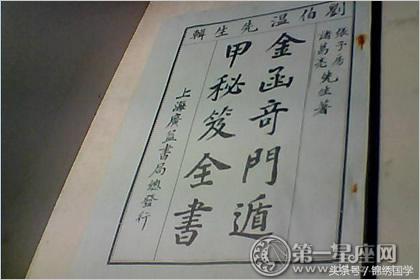 劉伯溫先生輯
張子房
諸葛亮先生著
金函奇門遁
甲秘笈全書
上海廣益書局總發行
第一星座网
头条号/锦绣国学